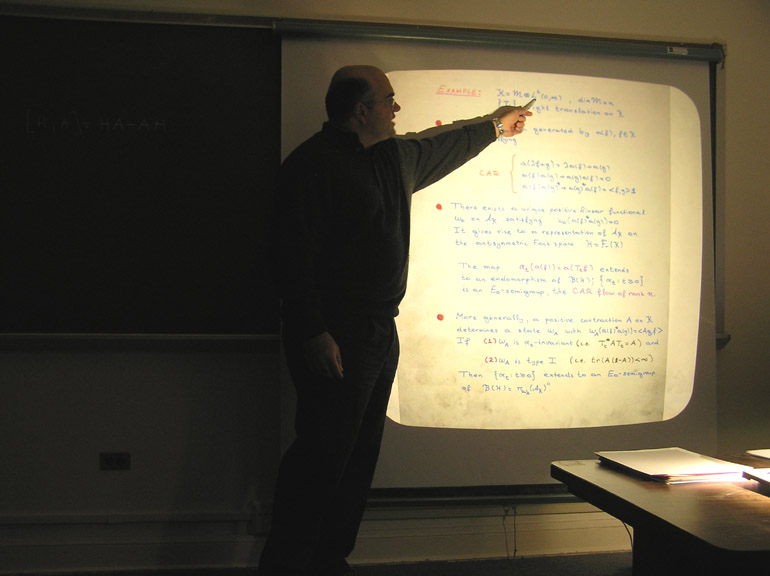 [H,A] = HA-AH
EXAMPLE: K = M ⊗ L²(0,∞), dim M = n
right translation on K
generated by a(f), f∈K
CAR
a(λf+g) = λa(f)+a(g)
a(f)a(g)+a(g)a(f)=0
a(f)a(g)*+a(g)*a(f)=<f,g>1
There exists a unique positive linear functional
ω₀ on 𝒜_K satisfying ω₀(a(f)*a(g))=0
It gives rise to a representation of 𝒜_K on
the antisymmetric Fock space H=F₋(K)
The map α_t(a(f))=a(T_t f) extends
to an endomorphism of B(H); {α_t: t≥0}
is an E₀-semigroup, the CAR flow of rank n.
More generally, a positive contraction A on K
determines a state ω_A with ω_A(a(f)*a(g))=<Ag,f>
If (1) ω_A is α_t-invariant (i.e. T_t*AT_t=A) and
(2) ω_A is type I (i.e. tr(A(1-A))<∞)
Then {α_t: t≥0} extends to an E₀-semigroup
of B(H) = π_ω_A(𝒜_K)"